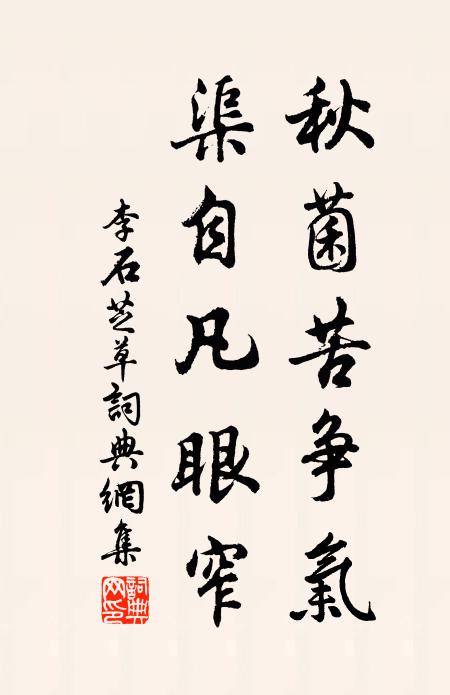 秋菌苦争氣
渠自凡眼窄
李石芝草詞典網集
詞典网印